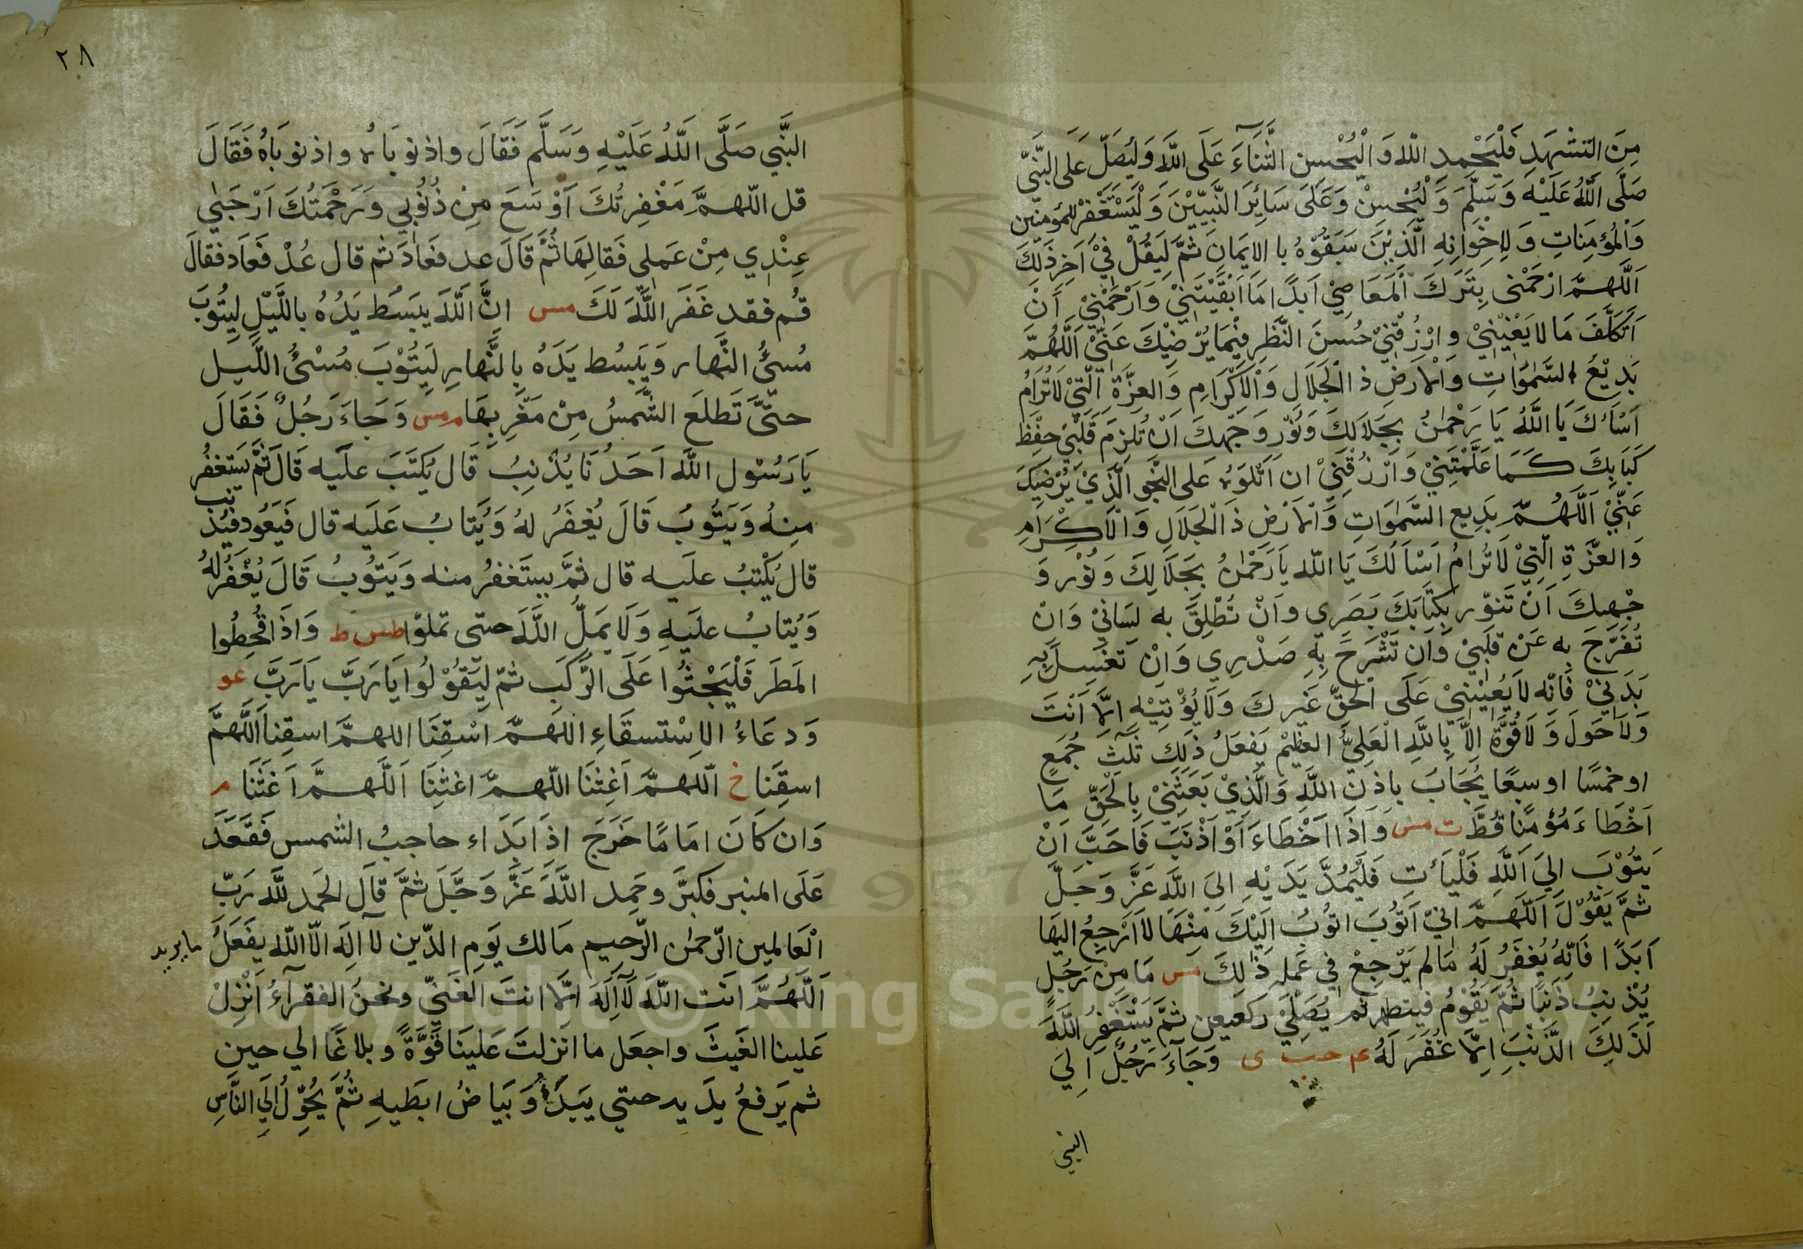 مِنَ التشهد فَلْيَحْمِدِ اللهَ وَ الْيُحْسِنِ الثَّنَاءَ عَلَى اللَّهِ وَلِيُصَلِّ عَلَى النَّبِيِّ
صَلَّى اللَّهُ عَلَيْهِ وَسَلَّمَ وَلْيُحْسِنْ وَعَلَى سَائِرِ النَّبِيِّينَ وَلْيَسْتَغْفِرْ للمؤمنين
وَالْمُؤمِنَاتِ وَلِاِخْوَانِهِ الَّذِيْنَ سَبَقُوْهُ بِالايمَانِ ثُمَّ لِيَقُلْ فِيْ آخِرِ ذَلِكَ
اَللَّهُمَّ ارْحَمْنِى بِتَرْكَ الْمَعَاصِيْ اَبَدًا مَا اَبْقَيْتَنِيْ وَارْحَمْنِيْ اَنْ
اَتَكَلَّفَ مَا لَا يَعْنِيْنِيْ وارْزُقْنِيْ حُسْنَ النَّظَرِ فِيْمَا يُرْضِيْكَ عَنِّيْ اَللَّهُمَّ
بَدِيْعُ السَّمٰوَاتِ وَالْاَرْضِ ذَ الْجَلَالِ وَالْاِكْرَامِ وَالعِزَّةِ الَّتِيْ لَا تُرَامُ
اَسْاَلُكَ يَا اللَّهُ يَا رَحْمٰنُ بِجَلَالِكَ وَنُوْرِ وَجْهِكَ اَنْ تُلْزِمَ قَلْبِيْ حِفْظَ
كِتَابِكَ كَمَا عَلَّمْتَنِيْ وَارْزُقْنِيْ ان اَتْلُوَهُ عَلَى النَّحْوِ الَّذِيْ يُرْضِيْكَ
عَنِّيْ اَللَّهُمَّ بَدِيع السَّمٰوَاتِ وَالْاَرْضِ ذَ الْجَلَالِ وَالْاِكْرَامِ
وَالعِزَّةِ الَّتِيْ لَا تُرَامُ اَسْاَلُكَ يَا اللّه يَا رَحْمٰنُ بِجَلَالِكَ وَنُوْرِ وَ
جْهِكَ اَنْ تَنَوِّر بِكِتَابَكَ بَصَرِى وَاَنْ تُطْلِقَ بِهِ لِسَانِيْ وَانْ
تُفَرِّجَ بِهِ عَنْ قَلْبِيْ وَاَنْ تَشْرَحَ بِهِ صَدْرِي وَانْ تَغْسِلَ بِهِ
بَدَنِيْ فَاِنَّه لَا يُعِيْنُنِيْ عَلَى الْحَقِّ غَيْرِكَ وَلَا يُؤْتِيْهِ اِلَّا اَنْتَ
وَلَا حَوْلَ وَلَا قُوَّةَ اِلَّا بِاللَّهِ الْعَلِيِّ العَظِيْمِ يَفْعَلُ ذٰلِكَ ثَلَثَ جُمَعٍ
اوخمسًا اوسبعًا يُجَابُ بِاِذْنِ اللَّهِ وَالَّذِيْ بَعَثَنِيْ بِالْحَقِّ مَا
اَخْطَاءَ مُؤمِنًا قُطَّ ت مس وَاِذَا اَخْطَاءَ اَوْ اَذْنَبَ فَاَحَبَّ اَنْ
يَتُوْبَ اِلَى اللَّهِ فَلْيَأتِ فَلْيَمُدَّ يَدَيْهِ اِلَى اللَّهِ عَزَّ وَجَلَّ
ثُمَّ يَقُوْلَ اَللّهُمَّ اِنِّيْ اَتُوْبَ اتُوْبُ اِلَيْكَ مِنْهَا لَا اَرْجِعُ اِليْهَا
اَبَدًا فَاِنَّهُ يُغْفَرُ لَهُ مَا لم يَرْجِعْ فِي عَمَلِهِ ذٰلِكَ مس مَا مِنْ رَجُلٍ
يُذْنِبُ ذَنْبًا ثُمَّ يَقُوْمُ فَيَتطهر ثم يُصَلِّيْ ركعتين ثُمَّ يَسْتَغْفِرُ اللَّهَ
لِذٰلِكَ الذَّنْبِ اِلَّا غُفِرَ لَهُ عه حب ى وَجَاءَ رَجُلٌ اِلَى
النبي
٢٨
النَّبِي صَلَّى اللَّهُ عَلَيْهِ وَسَلَّمَ فَقَالَ واذنوباه واذنوباه فَقَالَ
قل اللّهمَّ مَغْفِرتُكَ اَوْسَعَ مِنْ ذُنُوْبِي وَرَحْمَتُكَ اَرْجٰى
عِنْدِي مِنْ عَمَلِي فَقَالهَا ثُمَّ قَالَ عد فَعَادَ ثم قال عُدْ فَعَاد فقالَ
قُم فقد غَفَرَ اللَّهَ لَكَ مس اِنَّ اللَّهَ يبَسُط يَدُهُ بِاللَّيْلِ لِيَتُوْبَ
مُسئُ النَّهار وَيَبسُط يَدَهُ بِالنَّهارِ لِيَتُوْبَ مُسْئُ اللّيل
حتّىَّ تَطلعَ الشَّمسُ مِنْ مَغْرِبِهَا م مس وَجَاءَ رَجُلٌ فَقَالَ
يَا رَسُول اللَّه اَحَدُ نَا يُذْنِبُ قَال يُكْتَبَ عَلَيه قَالَ ثُمَّ يَستغفرُ
مِنهُ وَيَتُوبُ قَالَ يُغْفَرُ لهُ وَيُتابُ عَلَيَه قال فَيَعُود فيُذنب
قال يُكْتبُ عليه قال ثمَّ يستَغفرُ منه وَيَتوُبُ قَالَ يُغْفَرُ لهُ
وَيُتابُ عليَهِ وَلَا يَملُّ اللَّهَ حتى تملوْا طس ط وَاِذَا قُحِطُوا
المَطَر فَلْيَجْثُوا عَلَى الرُّكَبِ ثمّ لِيَقُوْلُوا يَا رَبَّ يَا رَبَّ عو
وَدعَاءُ الاِسْتسقَاءِ اللهُمَّ اسْقِنَا اللهمَّ اسقِنا اَللَّهمَّ
اسقِنَا خ اَللهمَّ اَغِثْنَا اللّهمَّ اغثِنَا اَللَّهمَّ اَغِثْنَا م
وَان كَانَ امَامًا خَرَجَ اِذَا بَدَاء حاجبُ الشمس فَقَعَدَ
عَلَى المنبر فَكبرَّ وحَمِد اللَّهَ عَزَّ وَجَلَّ ثمَّ قَالَ الحَمد للَّه رَبّ
الْعَالمين الرّحمٰن الرَّحيم مَالك يَوم الدّين لاَ اِلَه الاّ اللّه يَفعَلُ ما يريد
اَللَّهُمَّ اَنَت اللَّهَ لَا اِلٰهَ اِلَّا انتَ الغَنِيّ ونحنُ الفقرآءُ اَنْزِلْ
عَلينا الغَيثَ واجعَل ما انزلتَ عَلينَا قُوَّةً وبلاغًا الي حين
ثم يَرفعُ يدَيه حتى يَبَدُوَ بَيَاضُ ابطَيهِ ثُمَّ يُحَوِّلُ اِلَى النَّاسِ
Copyright © King Saud University
1957